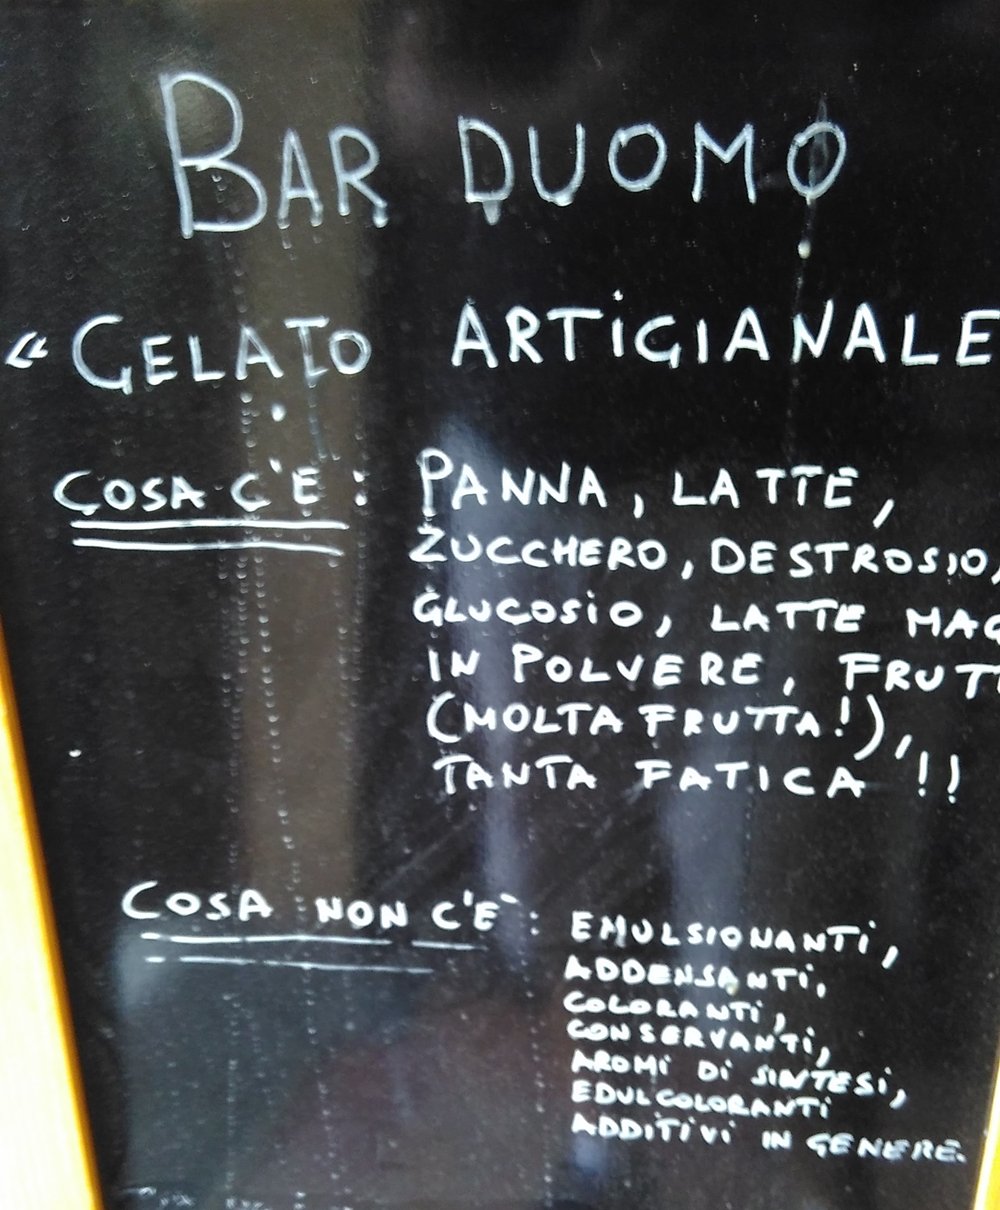 BAR DUOMO
“GELATO ARTIGIANALE
COSA C'E: PANNA, LATTE,
ZUCCHERO, DESTROSIO,
GLUCOSIO, LATTE MAG
IN POLVERE, FRUTT
(MOLTA FRUTTA!),
TANTA FATICA!!
COSA NON C'E`: EMULSIONANTI,
ADDENSANTI,
COLORANTI,
CONSERVANTI,
AROMI DI SINTESI,
EDULCOLORANTI
ADDITIVI IN GENERE.